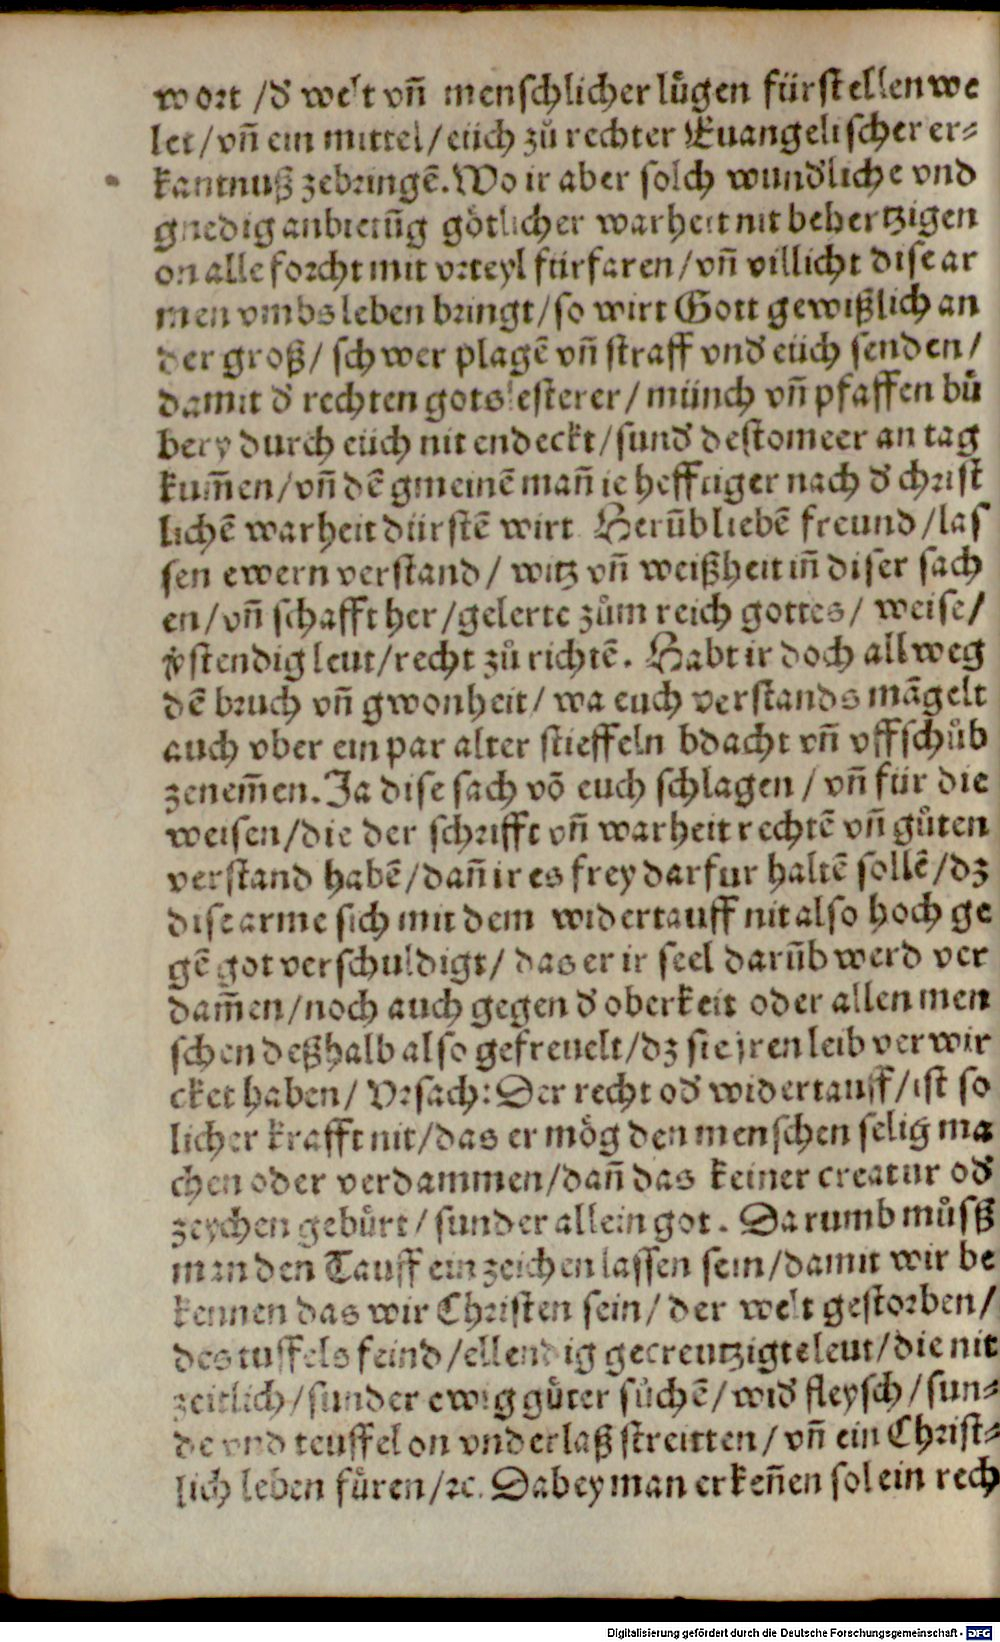 wort /d̄ welt vn̄ menschlicher lůgen fürstellen we
let/vn̄ ein mittel/eüch zů rechter Euangelischer er⸗
kantnuß zebringē. Wo ir aber solch wund̄liche vnd
gnedig anbietūg götlicher warheit nit behertzigen
on alle forcht mit vrteyl fürfaren/vn̄ villicht dise ar
men vmbs leben bringt/so wirt Gott gewißlich an
der groß/ schwer plagē vn̄ straff vnd̄ eüch senden/
damit d̄ rechten gotslesterer/münch vn̄ pfaffen bů
bery durch eüch nit endeckt/sund̄ destomeer an tag
kum̄en/vn̄ dē gmeinē man̄ ie hefftiger nach d̄ christ
lichē warheit dürstē wirt. Herūb liebē freund/las
sen ewern verstand/ witz vn̄ weißheit in̄ diser sach
en/vn̄ schafft her/gelerte zům reich gottes/ weise/
v̄stendig leut/recht zů richtē. Habt ir doch allweg
dē bruch vn̄ gwonheit/ wa euch verstands māgelt
auch vber ein par alter stieffeln bdacht vn̄ vffschůb
zenem̄en. Ja dise sach vō euch schlagen / vn̄ für die
weisen/die der schrifft vn̄ warheit rechtē vn̄ gůten
verstand habē/dan̄ ir es frey darfur haltē sollē/dz
dise arme sich mit dem widertauff nit also hoch ge
gē got verschuldigt/ das er ir seel darūb werd ver
dam̄en/noch auch gegen d̄ oberkeit oder allen men
schen deßhalb also gefreuelt/dz sie jren leib verwir
cket haben/ Vrsach: Der recht od̄ widertauff/ist so
licher krafft nit/das er mög den menschen selig ma
chen oder verdammen/dan̄ das keiner creatur od̄
zeychen gebürt/sunder allein got. Darumb můsß
man den Tauff ein zeichen lassen sein/damit wir be
kennen das wir Christen sein/ der welt gestorben/
des tuffels feind/ellendig gecreutzigte leut/die nit
zeitlich/sunder ewig güter sůchē/wid̄ fleysch/sun⸗
de vnd teuffel on vnderlaß streitten/vn̄ ein Christ⸗
lich leben füren/ꝛc. Dabey man erken̄en sol ein rech
Digitalisierung gefördert durch die Deutsche Forschungsgemeinschaft - DFG